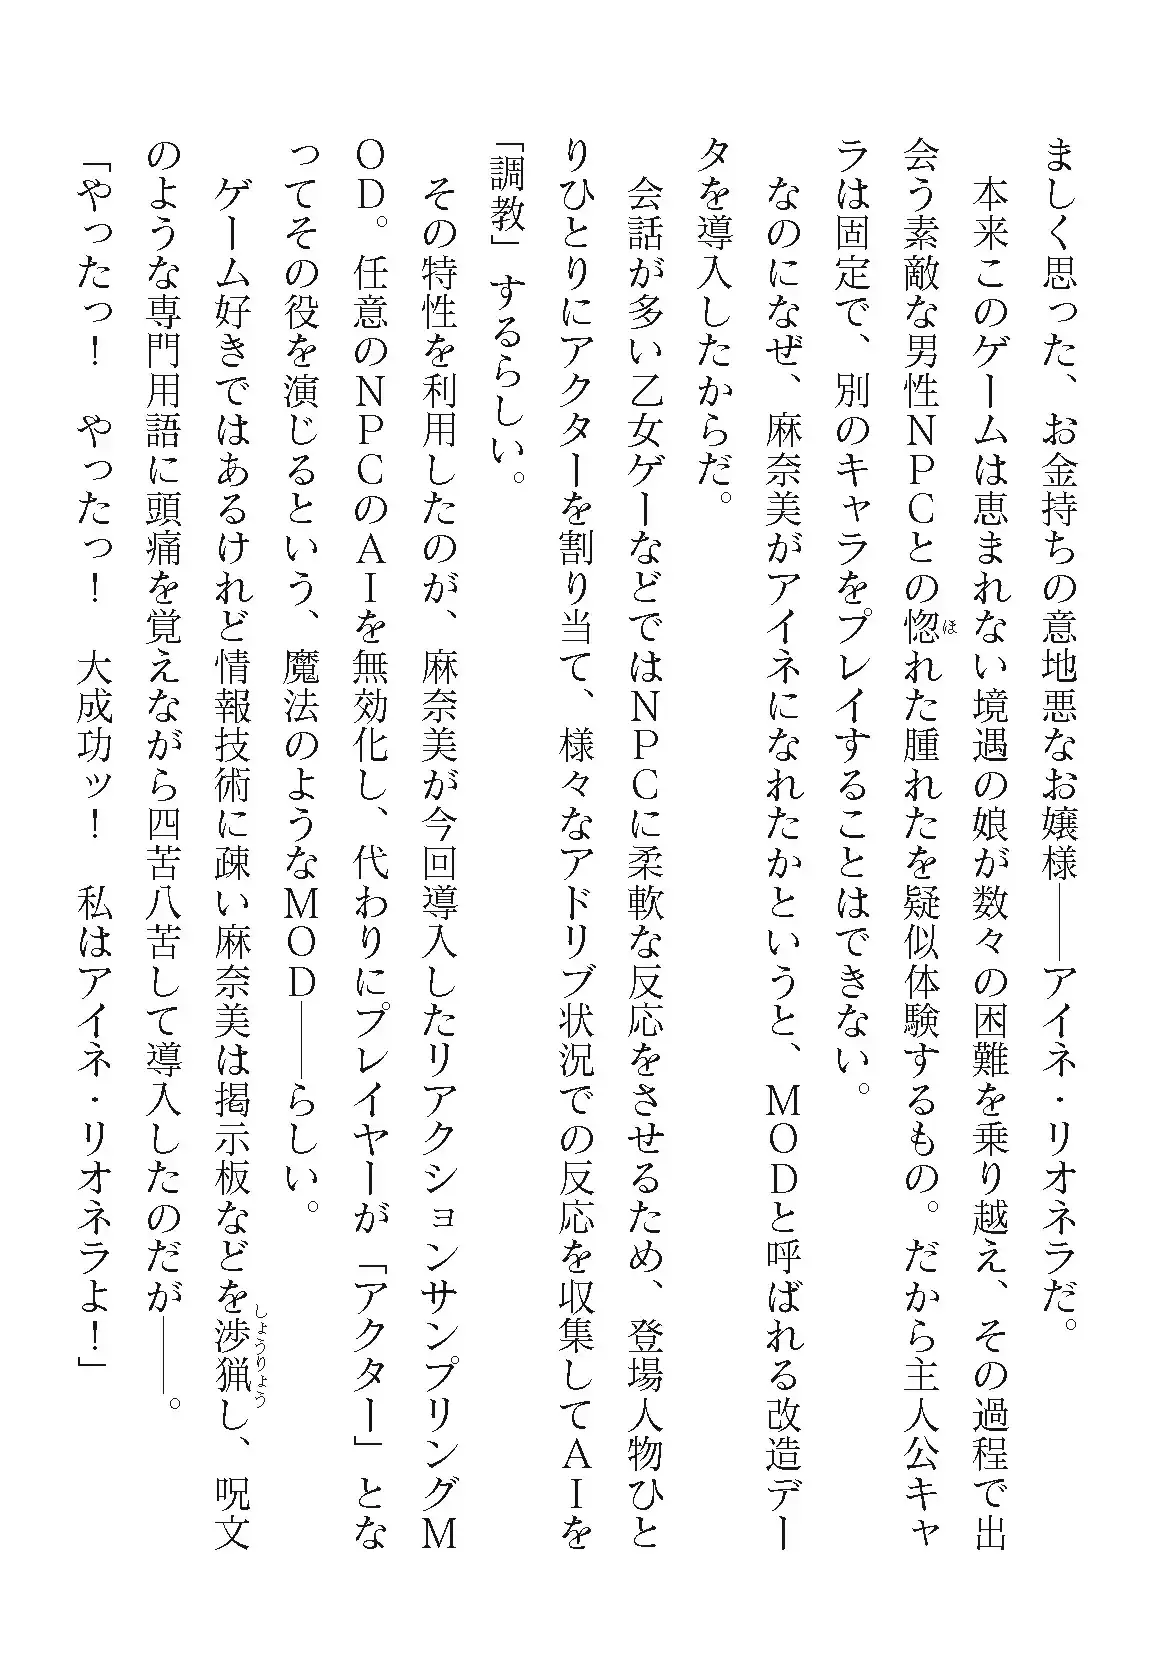 ましく思った、お金持ちの意地悪なお嬢様――アイネ・リオネラだ。
本来このゲームは恵まれない境遇の娘が数々の困難を乗り越え、その過程で出
会う素敵な男性NPCとの惚れた腫れたを疑似体験するもの。だから主人公キャ
ラは固定で、別のキャラをプレイすることはできない。
なのになぜ、麻奈美がアイネになれたかというと、MODと呼ばれる改造デー
タを導入したからだ。
会話が多い乙女ゲーなどではNPCに柔軟な反応をさせるため、登場人物ひと
りひとりにアクターを割り当て、様々なアドリブ状況での反応を収集してAIを
「調教」するらしい。
その特性を利用したのが、麻奈美が今回導入したリアクションサンプリングM
OD。任意のNPCのAIを無効化し、代わりにプレイヤーが「アクター」とな
ってその役を演じるという、魔法のようなMOD――らしい。
ゲーム好きではあるけれど情報技術に疎い麻奈美は掲示板などを渉猟し、呪文
のような専門用語に頭痛を覚えながら四苦八苦して導入したのだが――。
「やったっ！　やったっ！　大成功ッ！　私はアイネ・リオネラよ！」